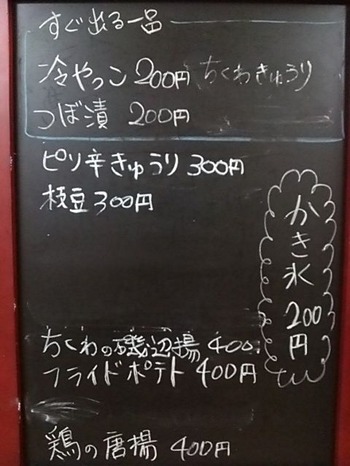 すぐ出る一品
冷やっこ 200円 ちくわきゅうり
つぼ漬 200円
ピリ辛きゅうり 300円
枝豆 300円
かき氷 200円
ちくわの磯辺揚 400.
フライドポテト 400円
鶏の唐揚 400円